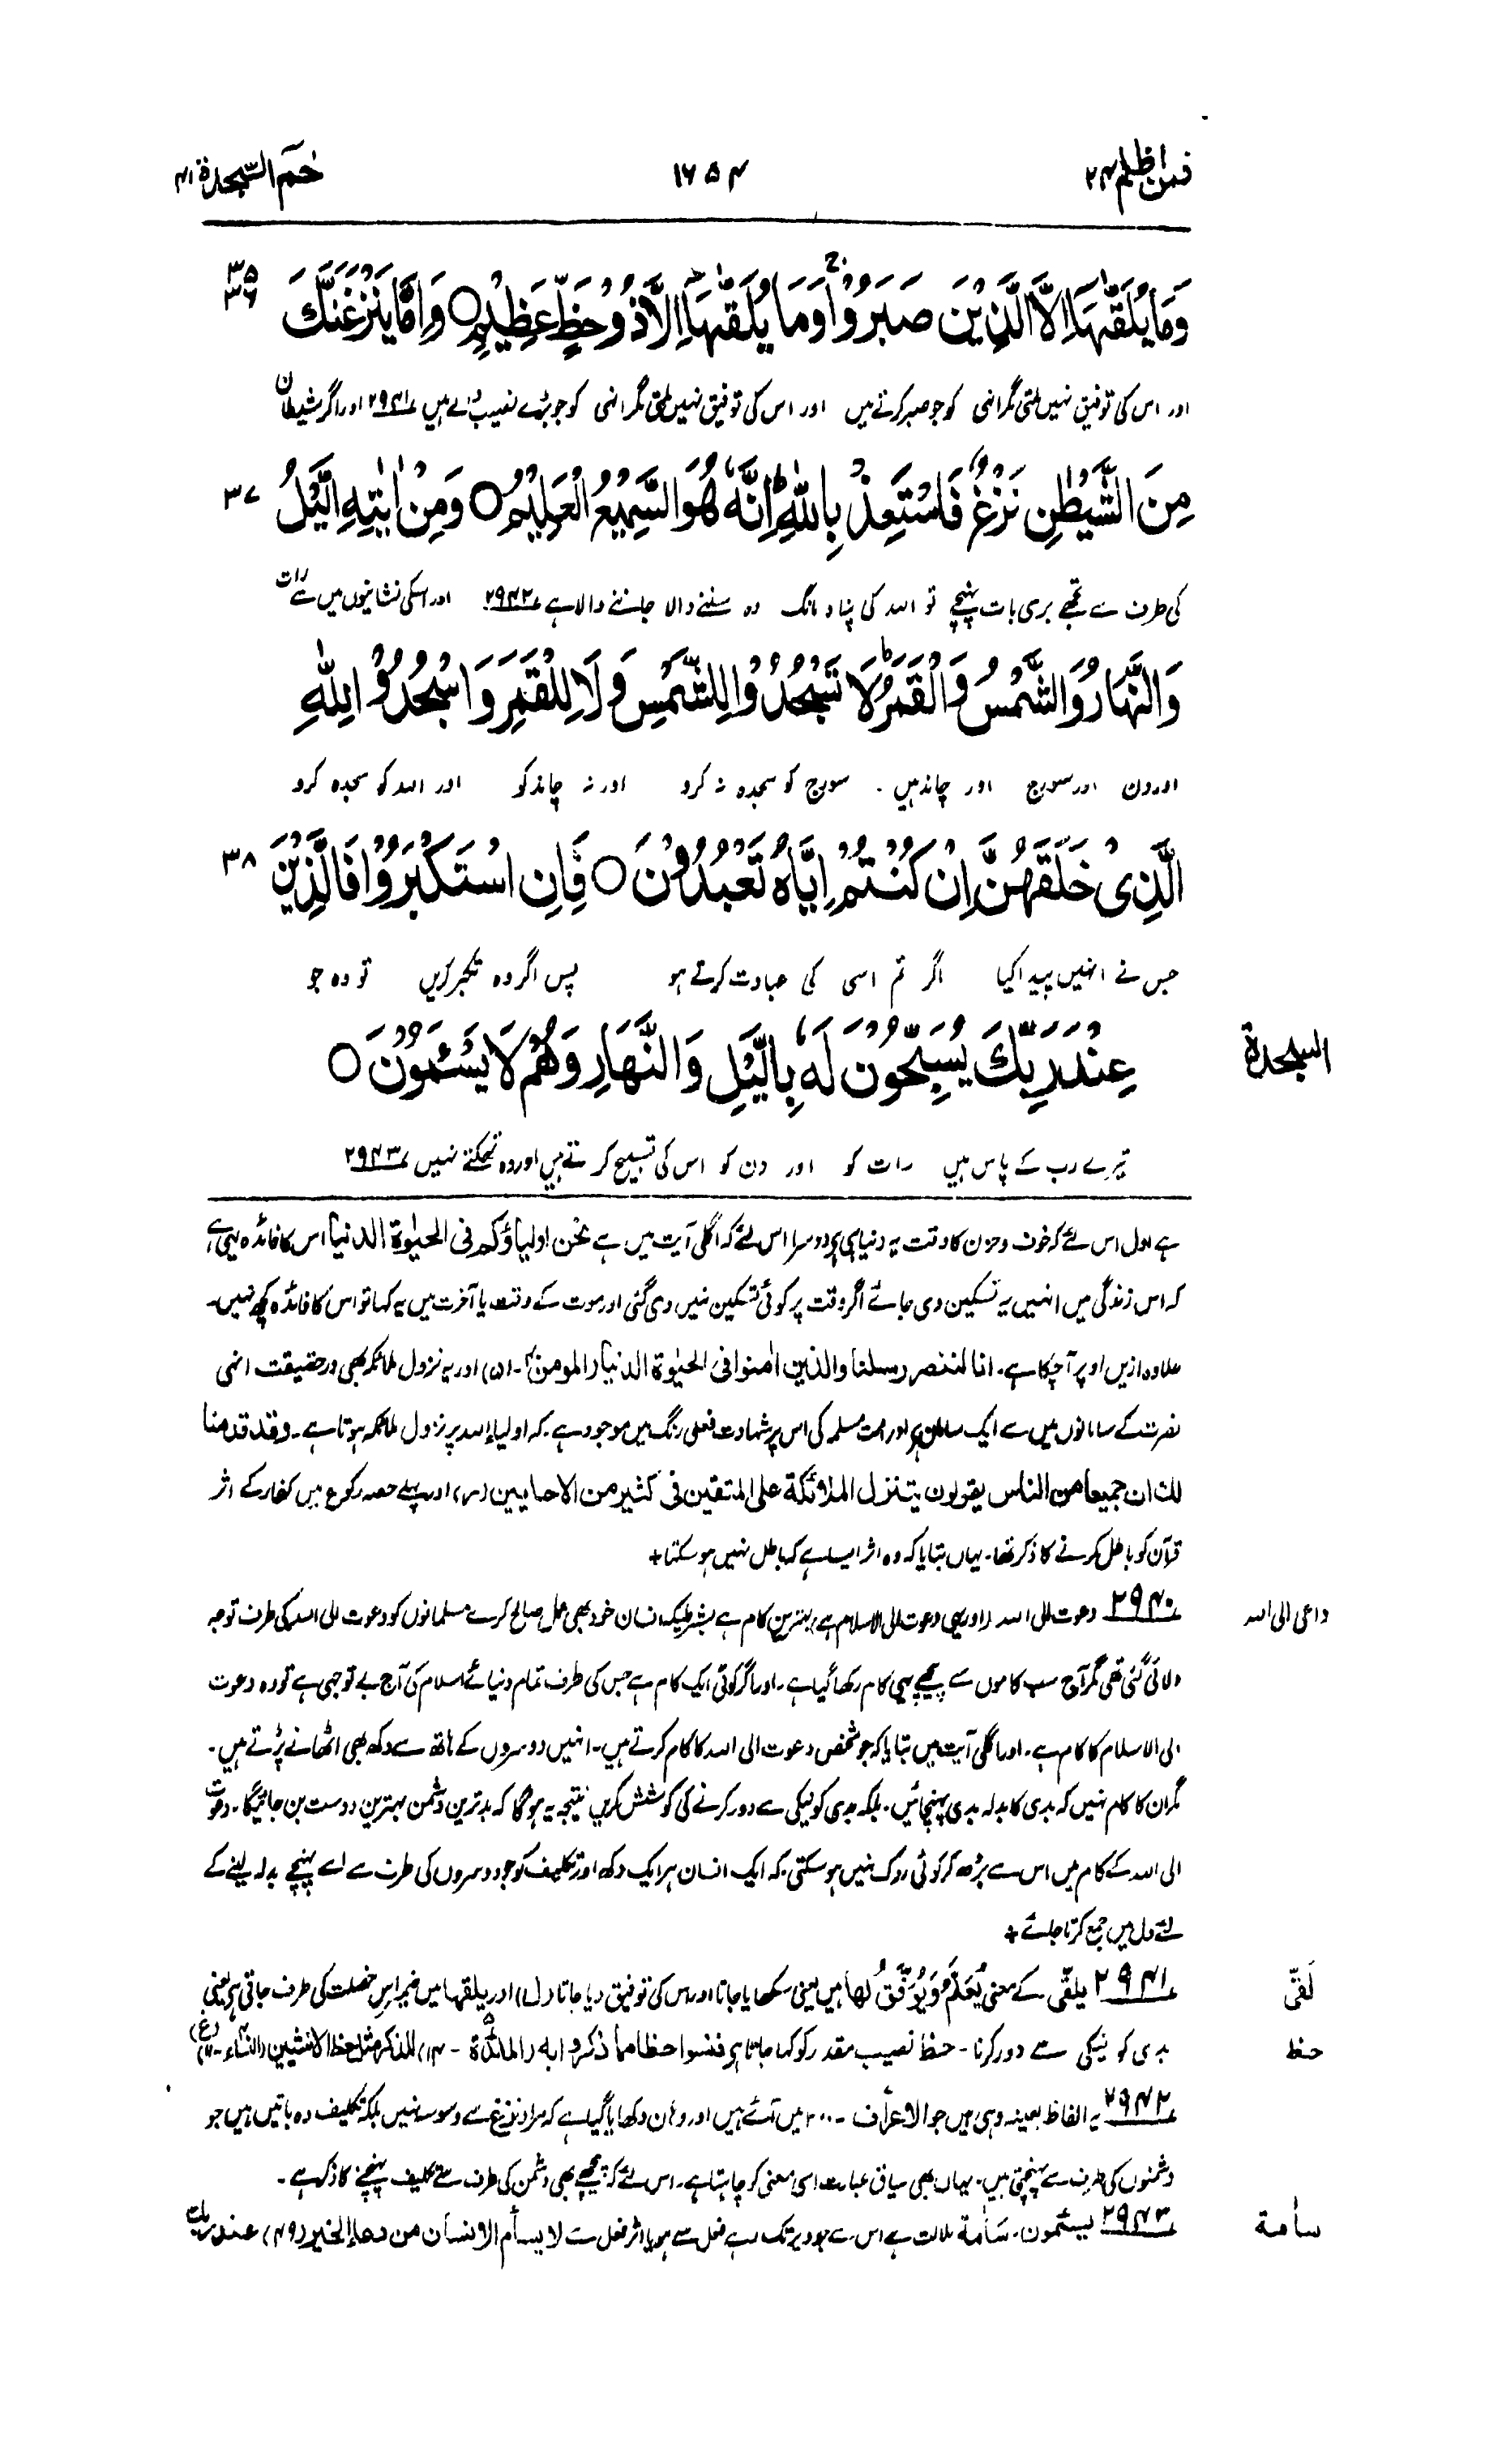 فمن اظلم ۲۴
۱۶۵۴
حٰمٓ السّجدة ۴۱
وَمَا يُلَقّٰىهَاۤ اِلَّا الَّذِيْنَ صَبَرُوْا ۚ وَمَا يُلَقّٰىهَاۤ اِلَّا ذُوْ حَظٍّ عَظِيْمٍ ○ وَاِمَّا يَنْزَغَنَّكَ
۳۵
۳۶
اور اس کی توفیق نہیں ملتی مگر انہی کو جو صبر کرتے ہیں اور اس کی توفیق نہیں ملتی مگر انہی کو جو بڑے نصیب والے ہیں ۲۹۴۱ اور اگر شیطان
مِنَ الشَّيْطٰنِ نَزْغٌ فَاسْتَعِذْ بِاللّٰهِ ؕ اِنَّهٗ هُوَ السَّمِيْعُ الْعَلِيْمُ ○ وَمِنْ اٰيٰتِهِ الَّيْلُ
۳۷
کی طرف سے تجھے بری بات پہنچے تو اللہ کی پناہ مانگ وہ سننے والا جاننے والا ہے ۲۹۴۲ اور اسکی نشانیوں میں سے رات
وَالنَّهَارُ وَالشَّمْسُ وَالْقَمَرُ ؕ لَا تَسْجُدُوْا لِلشَّمْسِ وَلَا لِلْقَمَرِ وَاسْجُدُوْا لِلّٰهِ
اور دن اور سورج اور چاند ہیں ۔ سورج کو سجدہ نہ کرو اور نہ چاند کو اور اللہ کو سجدہ کرو
الَّذِيْ خَلَقَهُنَّ اِنْ كُنْتُمْ اِيَّاهُ تَعْبُدُوْنَ ○ فَاِنِ اسْتَكْبَرُوْا فَالَّذِيْنَ
۳۸
جس نے انہیں پیدا کیا اگر تم اسی کی عبادت کرتے ہو پس اگر وہ تکبر کریں تو وہ جو
عِنْدَ رَبِّكَ يُسَبِّحُوْنَ لَهٗ بِالَّيْلِ وَالنَّهَارِ وَهُمْ لَا يَسْـَٔمُوْنَ ○
السجدة
تیرے رب کے پاس ہیں رات کو اور دن کو اس کی تسبیح کرتے ہیں اور وہ تھکتے نہیں ۲۹۴۳
ہے اول اس لئے کہ خوف و حزن کا وقت یہ دنیا ہی ہے دوسرا اس لئے کہ اگلی آیت میں ہے نحن اولیاؤکم فی الحیٰوۃ الدنیا اس کا فائدہ یہی ہے
کہ اس زندگی میں انہیں یہ تسکین دی جائے اگر وقت پر کوئی تسکین نہیں دی گئی اور موت کے وقت یا آخرت میں یہ کہا تو اس کا فائدہ کچھ نہیں۔
علاوہ ازیں اوپر آچکا ہے۔ انا لننصر رسلنا والذین اٰمنوا فی الحیٰوۃ الدنیا (المومن۔۵۱) اور یہ نزول ملائکہ بھی درحقیقت انہی
نصرت کے سامانوں میں سے ایک سامان ہے اور امت مسلمہ کی اس پر شہادت فعلی رنگ میں موجود ہے۔ کہ اولیاء اللہ پر نزول ملائکہ ہوتا ہے۔ وقد قدمنا
لک ان جمیعا من الناس یقولون بتنزل الملائکۃ علی المتقین فی کثیر من الاحایین (ر) اور پہلے حصہ رکوع میں کفار کے اثر
قرآن کو باطل کرنے کا ذکر تھا۔ یہاں بتایا کہ وہ اثر ایسا ہے کہ باطل نہیں ہو سکتا +
۲۹۴۰ دعوت الی اللہ (اور یہی دعوت الی الاسلام ہے) بہترین کام ہے بشرطیکہ انسان خود بھی عمل صالح کرے مسلمانوں کو دعوت الی اللہ کی طرف توجہ
داعی الی اللہ
دلائی گئی تھی مگر آج سب کاموں سے پیچھے یہی کام رکھا گیا ہے۔ اور اگر کوئی ایک کام ہے جس کی طرف تمام دنیائے اسلام کی آج بے توجہی ہے تو وہ دعوت
الی الاسلام کا کام ہے۔ اور اگلی آیت میں بتایا کہ جو شخص دعوت الی اللہ کا کام کرتے ہیں۔ انہیں دوسروں کے ہاتھ سے دکھ بھی اٹھانے پڑتے ہیں۔
مگر ان کا کام نہیں کہ بدی کا بدلہ بدی پہنچائیں۔ بلکہ بدی کو نیکی سے دور کرنے کی کوشش کریں نتیجہ یہ ہوگا کہ بدترین دشمن بہترین دوست بن جائیگا۔ دعوت
الی اللہ کے کام میں اس سے بڑھ کر کوئی روک نہیں ہو سکتی کہ ایک انسان ہر ایک دکھ اور تکلیف کو جو دوسروں کی طرف سے اسے پہنچے بدلہ لینے کے
لئے دل میں جمع کرتا جائے +
۲۹۴۱ یلقّٰی کے معنی یُعَلَّمُ وَیُوَفَّقُ لھا ہیں یعنی سکھایا جاتا اور اس کی توفیق دیا جاتا (ل) اور یلقٰھا میں ضمیر اس خصلت کی طرف جاتی ہے یعنی
لَقّٰی
بدی کو نیکی سے دور کرنا۔ حظ نصیب مقدر کو کہا جاتا ہے فنسوا حظا مما ذکروا بہ (المائدۃ - ۱۴) للذکر مثل حظ الانثیین (النساء -) (غ)
حظ
۲۹۴۲ یہ الفاظ بعینہ وہی ہیں جو الاعراف - ۲۰۰ میں آئے ہیں اور وہاں دکھایا گیا ہے کہ مراد نزغ سے وسوسہ نہیں بلکہ تکلیف دہ باتیں ہیں جو
دشمنوں کی طرف سے پہنچتی ہیں۔ یہاں بھی سیاق عبارت اسی معنی کو چاہتا ہے۔ اس لئے کہ پیچھے بھی دشمن کی طرف سے تکلیف پہنچنے کا ذکر ہے۔
۲۹۴۳ یسئمون۔ سَاٰمۃ ملالت ہے اس سے جو دیر تک رہے فعل سے ہو یا اثر فعل سے لا یسأم الانسان من دعاء الخیر (۴۹) عند ربک
سأمة